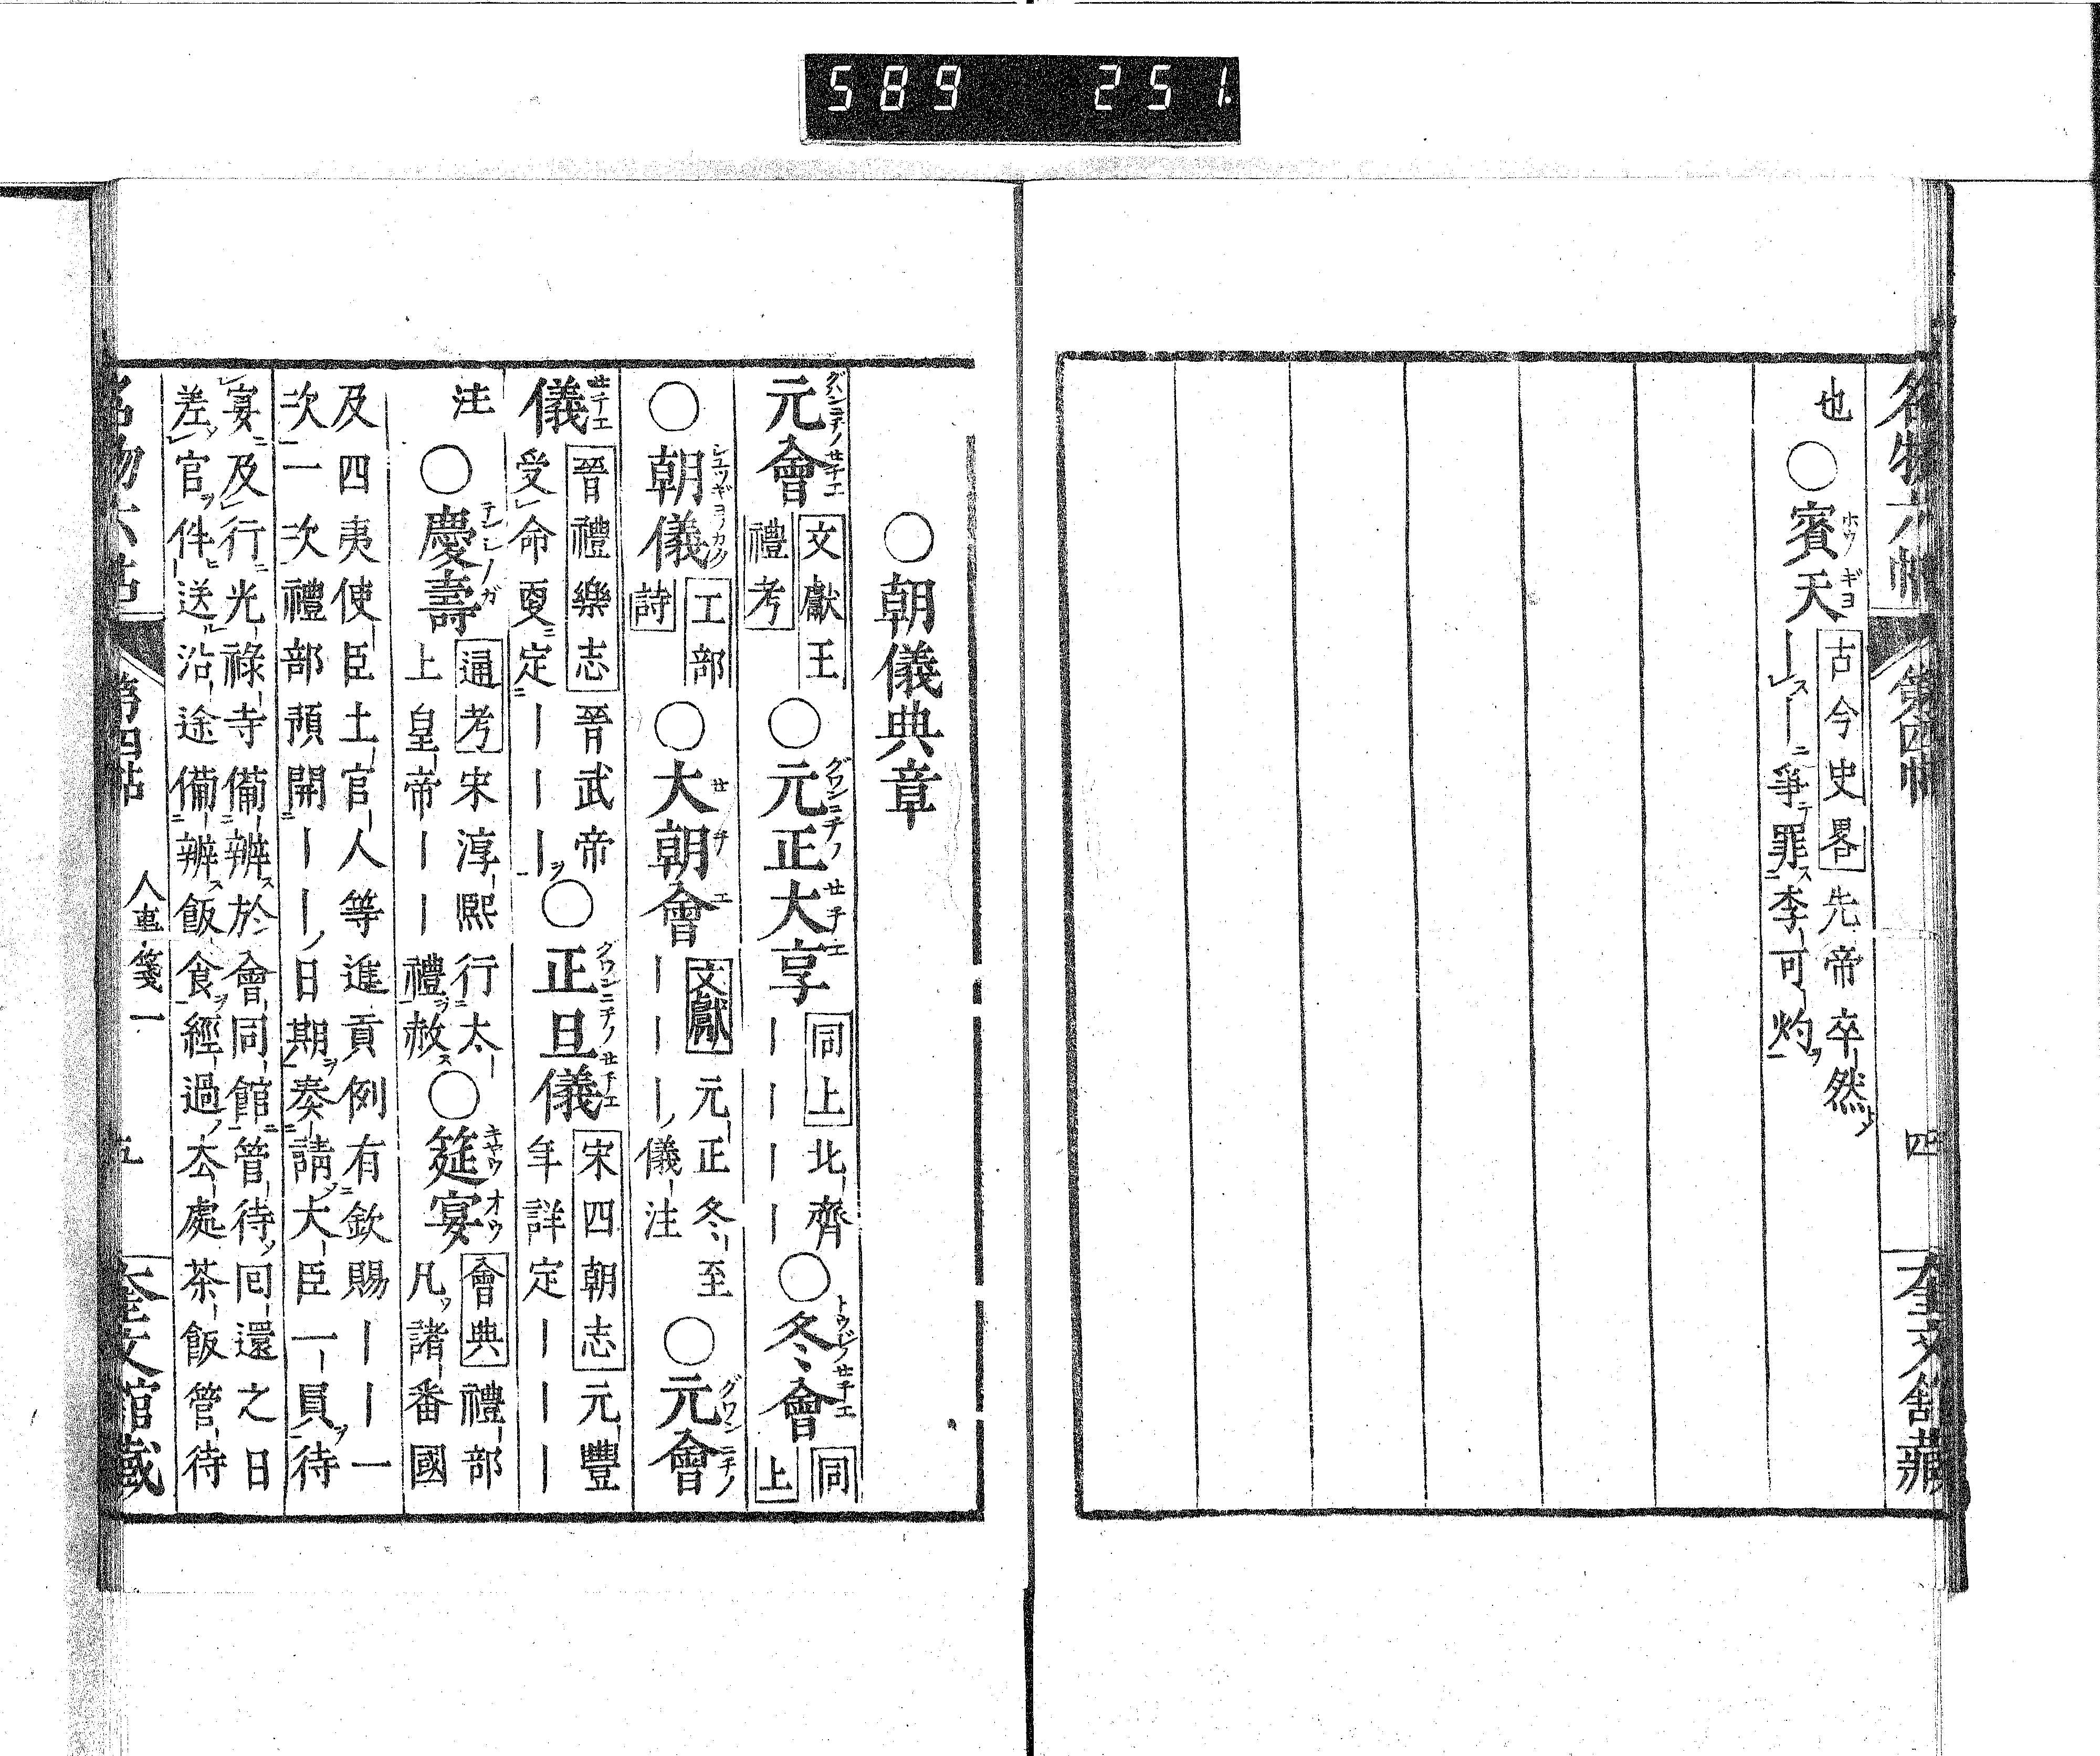 589 251
名物六帖 第四帖 四 奎文館藏
也○賓天 古今史畧 先帝卒然
｜｜爭罪李可灼
○朝儀典章
元會 文獻王禮考 ○元正大享 同上 北齊｜｜｜｜ ○冬會 同上
○朝儀 工部詩 ○大朝會 文獻 元正冬至｜｜｜儀注 ○元會
儀 晉禮樂志 晉武帝受命更定｜｜｜ ○正旦儀 宋四朝志 元豐年詳定｜｜｜
注○慶壽 通考 宋淳熙行太上皇帝｜｜禮赦 ○筵宴 會典 禮部凡諸番國
及四夷使臣土官人等進貢例有欽賜｜｜一
次一次禮部預開｜｜日期奏請大臣一員待
宴及行光祿寺備辦於會同館管待回還之日
差官件送沿途備辦飯食經過去處茶飯管待
名物六帖 第四帖 人事箋一 五 奎文館藏